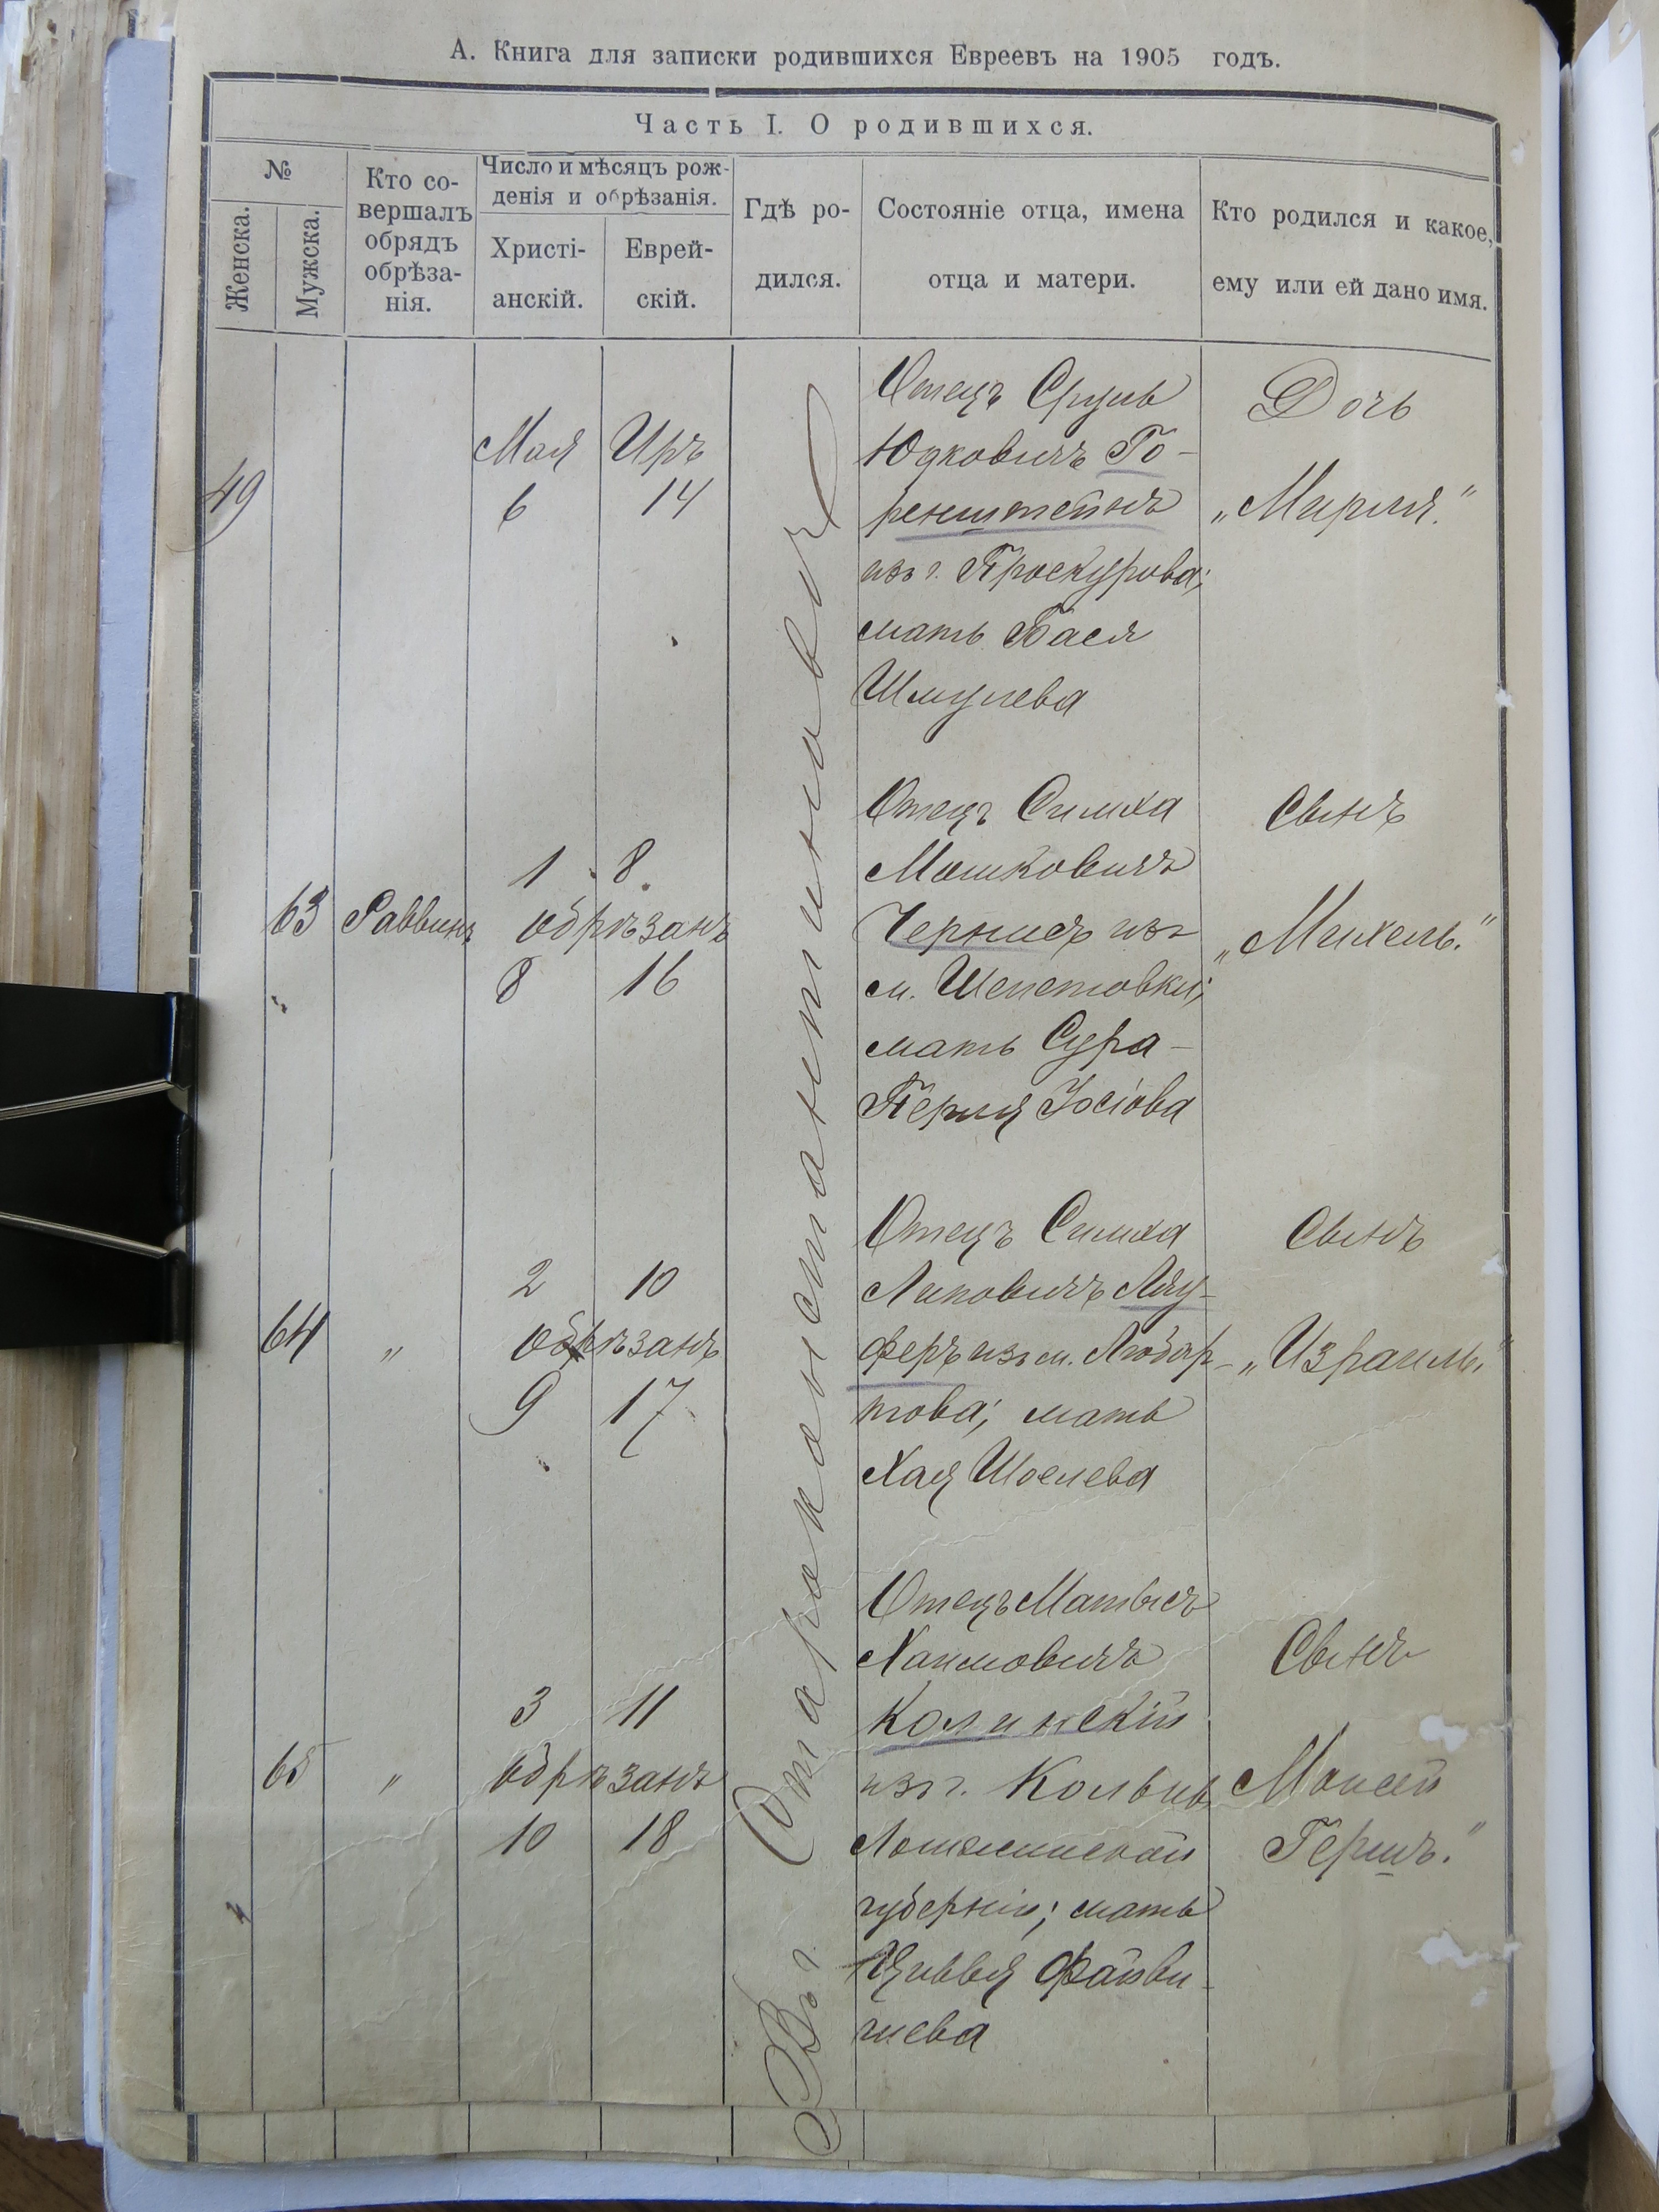 А. Книга для записки родившихся Евреевъ на 1905 годъ.
Часть I. О родившихся.
№
Женска.
Мужска.
Кто со-
вершалъ
обрядъ
обрѣза-
нія.
Число и мѣсяцъ рож-
денія и обрѣзанія.
Христі-
анскій.
Еврей-
скій.
Гдѣ ро-
дился.
Состояніе отца, имена
отца и матери.
Кто родился и какое,
ему или ей дано имя.
Въ г. Староконстантиновѣ
49
Мая Иръ
6 14
Отецъ Сруль
Юдковичъ Го-
ренштейнъ
изъ г. Проскурова;
мать Бася
Шмулева
Дочь
„Мирля."
63
Раввинъ
1 8
обрѣзанъ
8 16
Отецъ Симха
Мошковичъ
Чернисъ изъ
м. Шепетовки;
мать Сура-
Перля Іосіова
Сынъ
„Михель."
64
„
2 10
обрѣзанъ
9 17
Отецъ Симха
Липовичъ Лау-
феръ изъ м. Любар-
това; мать
Хая Шоелева
Сынъ
„Израиль."
65
„
3 11
обрѣзанъ
10 18
Отецъ Матысъ
Хаимовичъ
Колинскій
изъ г. Кольно
Ломжинской
губерніи; мать
Цивья Файви-
шева
Сынъ
Моисей
Гершъ."